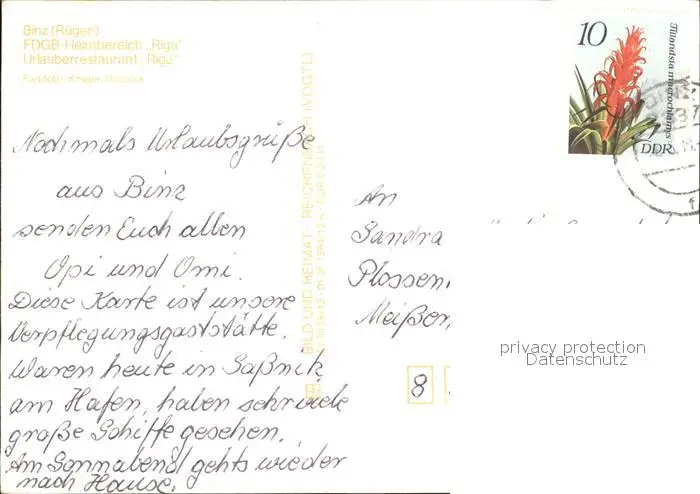 Binz (Rügen)
FDGB-Heimbereich „Riga"
Urlauberrestaurant „Riga"
Farbfoto: Kruger, Rostock
Nochmals Urlaubsgrüße
aus Binz
senden Euch allen
Opi und Omi.
Diese Karte ist unsere
Verpflegungsgaststätte.
Waren heute in Saßnitz
am Hafen, haben sehr viele
große Schiffe gesehen.
Am Sonnabend gehts wieder
nach Hause.
BILD UND HEIMAT REICHENBACH (VOGTL)
10
Tillandsia macrochlamys
DDR
An
Sandra
Plossen
Meißen
8
privacy protection
Datenschutz